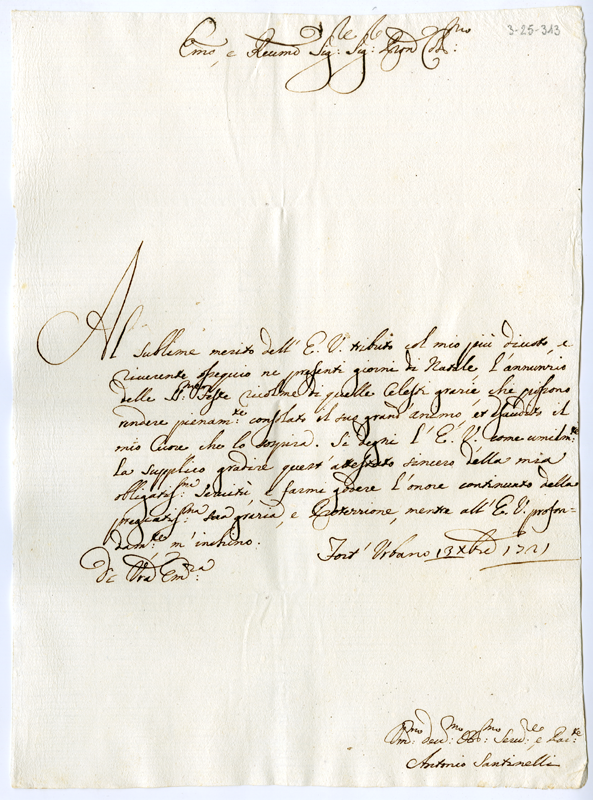 3-25-313
Em̃o, e Reũmo Sig:re Sig: Pron Col:mo
Al sublime merito dell' E. V. tributo col mio più diuoto, e
riuerente ossequio ne presenti giorni di Natale l'annunzio
delle S.me Feste ricolme di quelle Celesti grazie che possono
rendere pienam.te consolato il suo grand' animo, et esaudito il
mio Cuore che lo sospira. Si degni l' E. V. come umilm.te
la supplico gradire quest' attestato sincero della mia
obligatis.ma seruitù, e farmi godere l'onore continuato della
pregiatis.ma sua grazia, e Protezzione, mentre all' E. V. profon=
dam.te m'inchino.
Fort' Urbano 13 Xbre 1721
De Vrã Em.za
Um:mo deu:mo Obl:mo Seru:re e
Antonio Santinelli